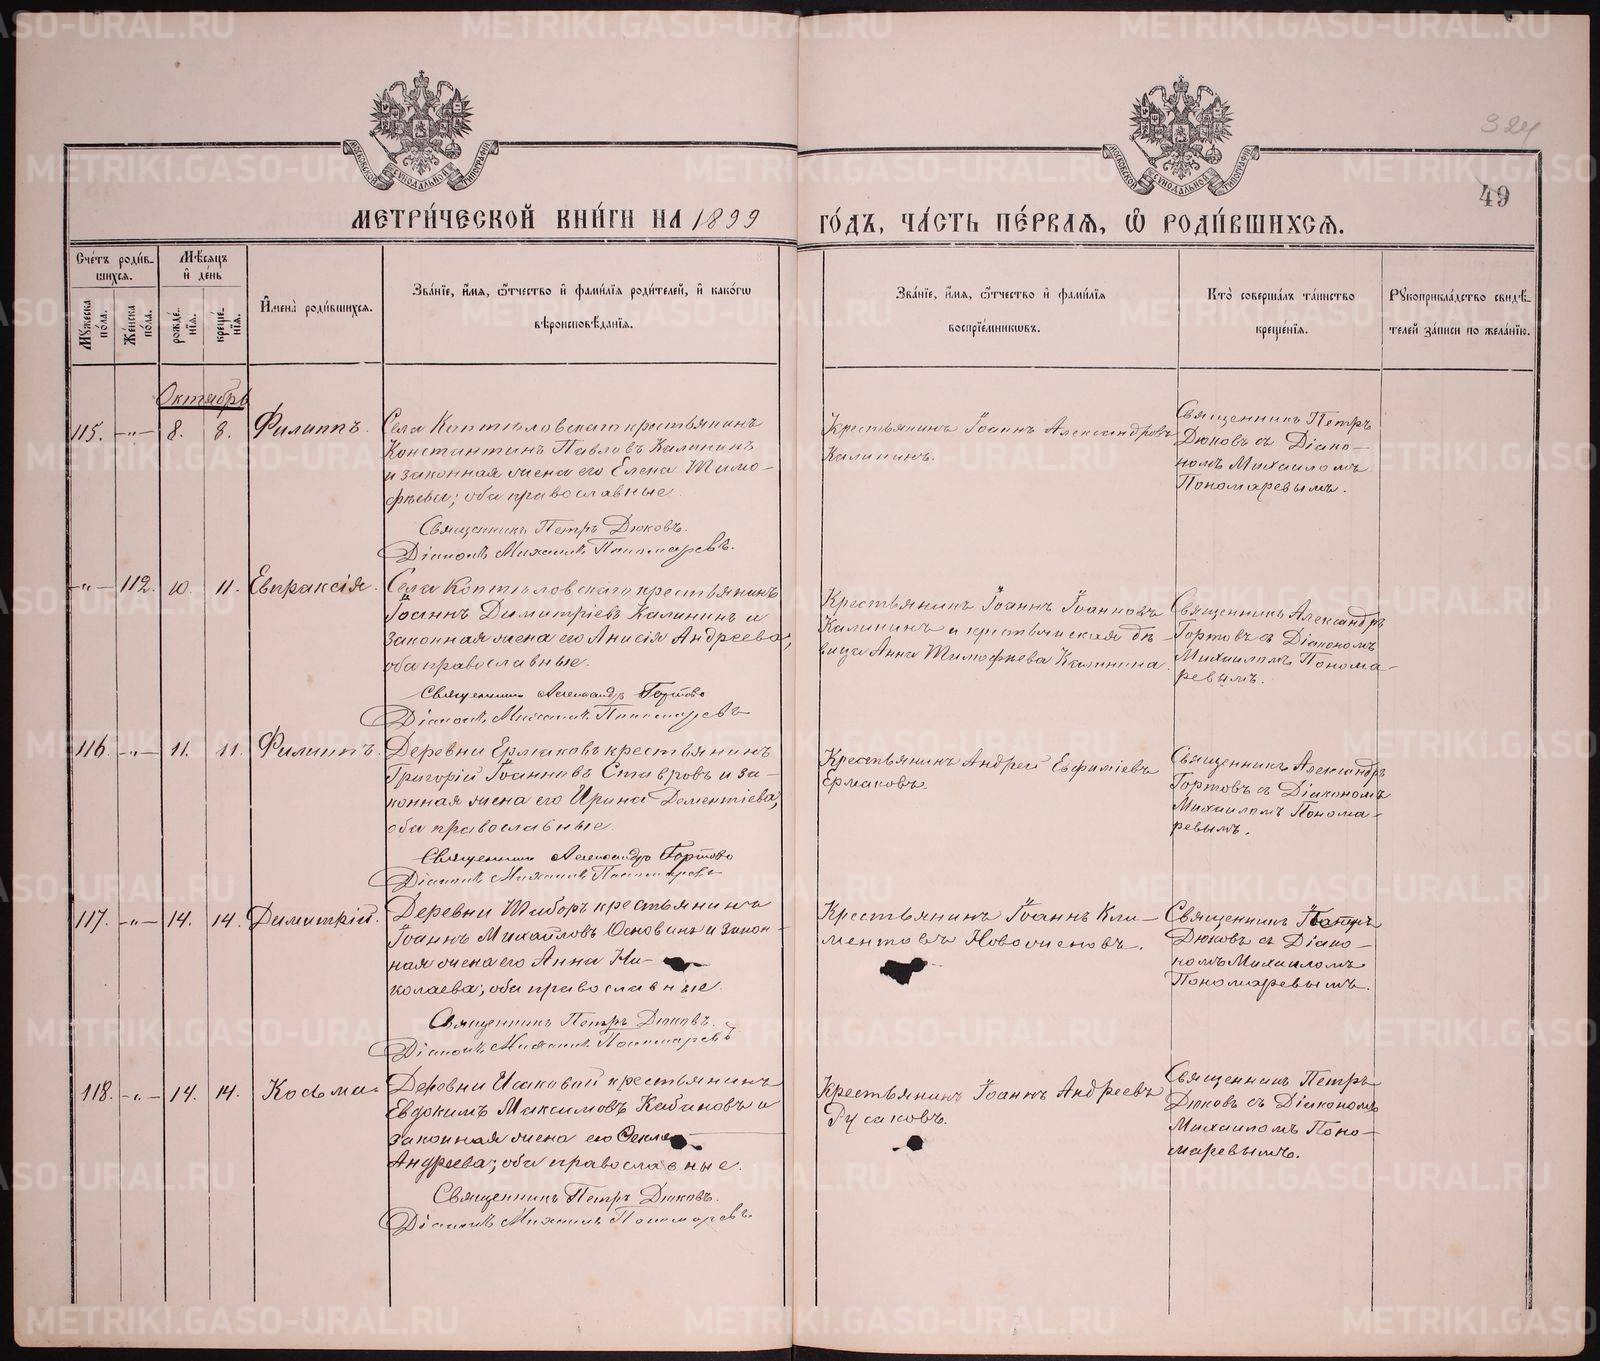 324
49
МЕТРИ́ЧЕСКОЙ КНИ́ГИ НА 1899 ГО́ДЪ, ЧА́СТЬ ПЕ́РВАѦ, Ѡ҆ РОДИ́ВШИХСѦ.
Сче́тъ роди́в-
шихся.
Мѣ́сяцъ
и҆ де́нь
Мꙋ́жеска
по́ла.
Же́нска
по́ла.
рожде́-
нїя.
креще́-
нїя.
И҆мена̀ роди́вшихся.
Зва́нїе, и҆́мя, ѻ҆́тчество и҆ фами́лїя роди́телей, и҆ како́гѡ
вѣроисповѣ́данїя.
Зва́нїе, и҆́мя, ѻ҆́тчество и҆ фами́лїя
воспрїе́мникѡвъ.
Кто̀ соверша́лъ та́инство
креще́нїя.
Рꙋкоприкла́дство свидѣ́-
телей за́писи по жела́нїю.
Октябрь
115. -„- 8. 8. Филиппъ.
Села Коптѣловскаго крестьянинъ
Константинъ Павловъ Калининъ
и законная жена его Елена Тимо-
фѣева; оба православные.
Священникъ Петръ Дюковъ.
Діаконъ Михаилъ Пономаревъ.
Крестьянинъ Іоаннъ Александровъ
Калининъ.
Священникъ Петръ
Дюковъ съ Діако-
номъ Михаиломъ
Пономаревымъ.
-„- 112. 10. 11. Евпраксія.
Села Коптѣловскаго крестьянинъ
Іоаннъ Димитріевъ Калининъ и
законная жена его Анисія Андреева;
оба православные.
Священникъ Александр Гортовъ
Діаконъ Михаилъ Пономаревъ
Крестьянинъ Іоаннъ Іоанновъ
Калининъ и крестьянская дѣ-
вица Анна Тимофѣева Калинина.
Священникъ Александръ
Гортовъ съ Діакономъ
Михаиломъ Понома-
ревымъ.
116. -„- 11. 11. Филиппъ.
Деревни Ермаковъ крестьянинъ
Григорій Іоанновъ Ставровъ и за-
конная жена его Ирина Дементіева;
оба православные.
Священникъ Александръ Гортовъ
Діаконъ Михаилъ Пономаревъ
Крестьянинъ Андрей Евфиміевъ
Ермаковъ.
Священникъ Александръ
Гортовъ съ Діакономъ
Михаиломъ Понома-
ревымъ.
117. -„- 14. 14. Димитрій.
Деревни крестьянинъ
Іоаннъ Михайловъ Основинъ и закон-
ная жена его Анна Ни-
колаева; оба православные.
Священникъ Петръ Дюковъ.
Діаконъ Михаилъ Пономаревъ
Крестьянинъ Іоаннъ Кли-
ментовъ Новоженовъ.
Священникъ Петръ
Дюковъ съ Діако-
номъ Михаиломъ
Пономаревымъ.
118. -„- 14. 14. Косьма.
Деревни Исаковой крестьянинъ
Евдокимъ Максимовъ Кабановъ и
законная жена его Ѳекла
Андреева; оба православные.
Священникъ Петръ Дюковъ.
Діаконъ Михаилъ Пономаревъ.
Крестьянинъ Іоаннъ Андреевъ
Русаковъ.
Священникъ Петръ
Дюковъ съ Діакономъ
Михаиломъ Поно-
маревымъ.
METRIKI.GASO-URAL.RU